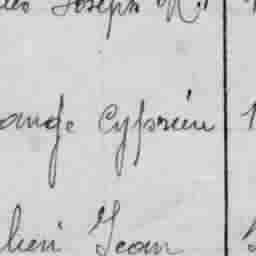 Joseph N.
ange Cyprien 1
lien Jean